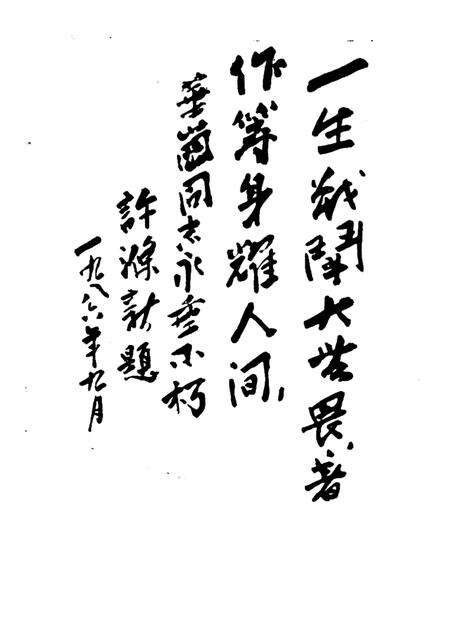 一生战鬥大無畏，著
作等身耀人间，
華崗同志永垂不朽
許滌新題
一九八六年九月